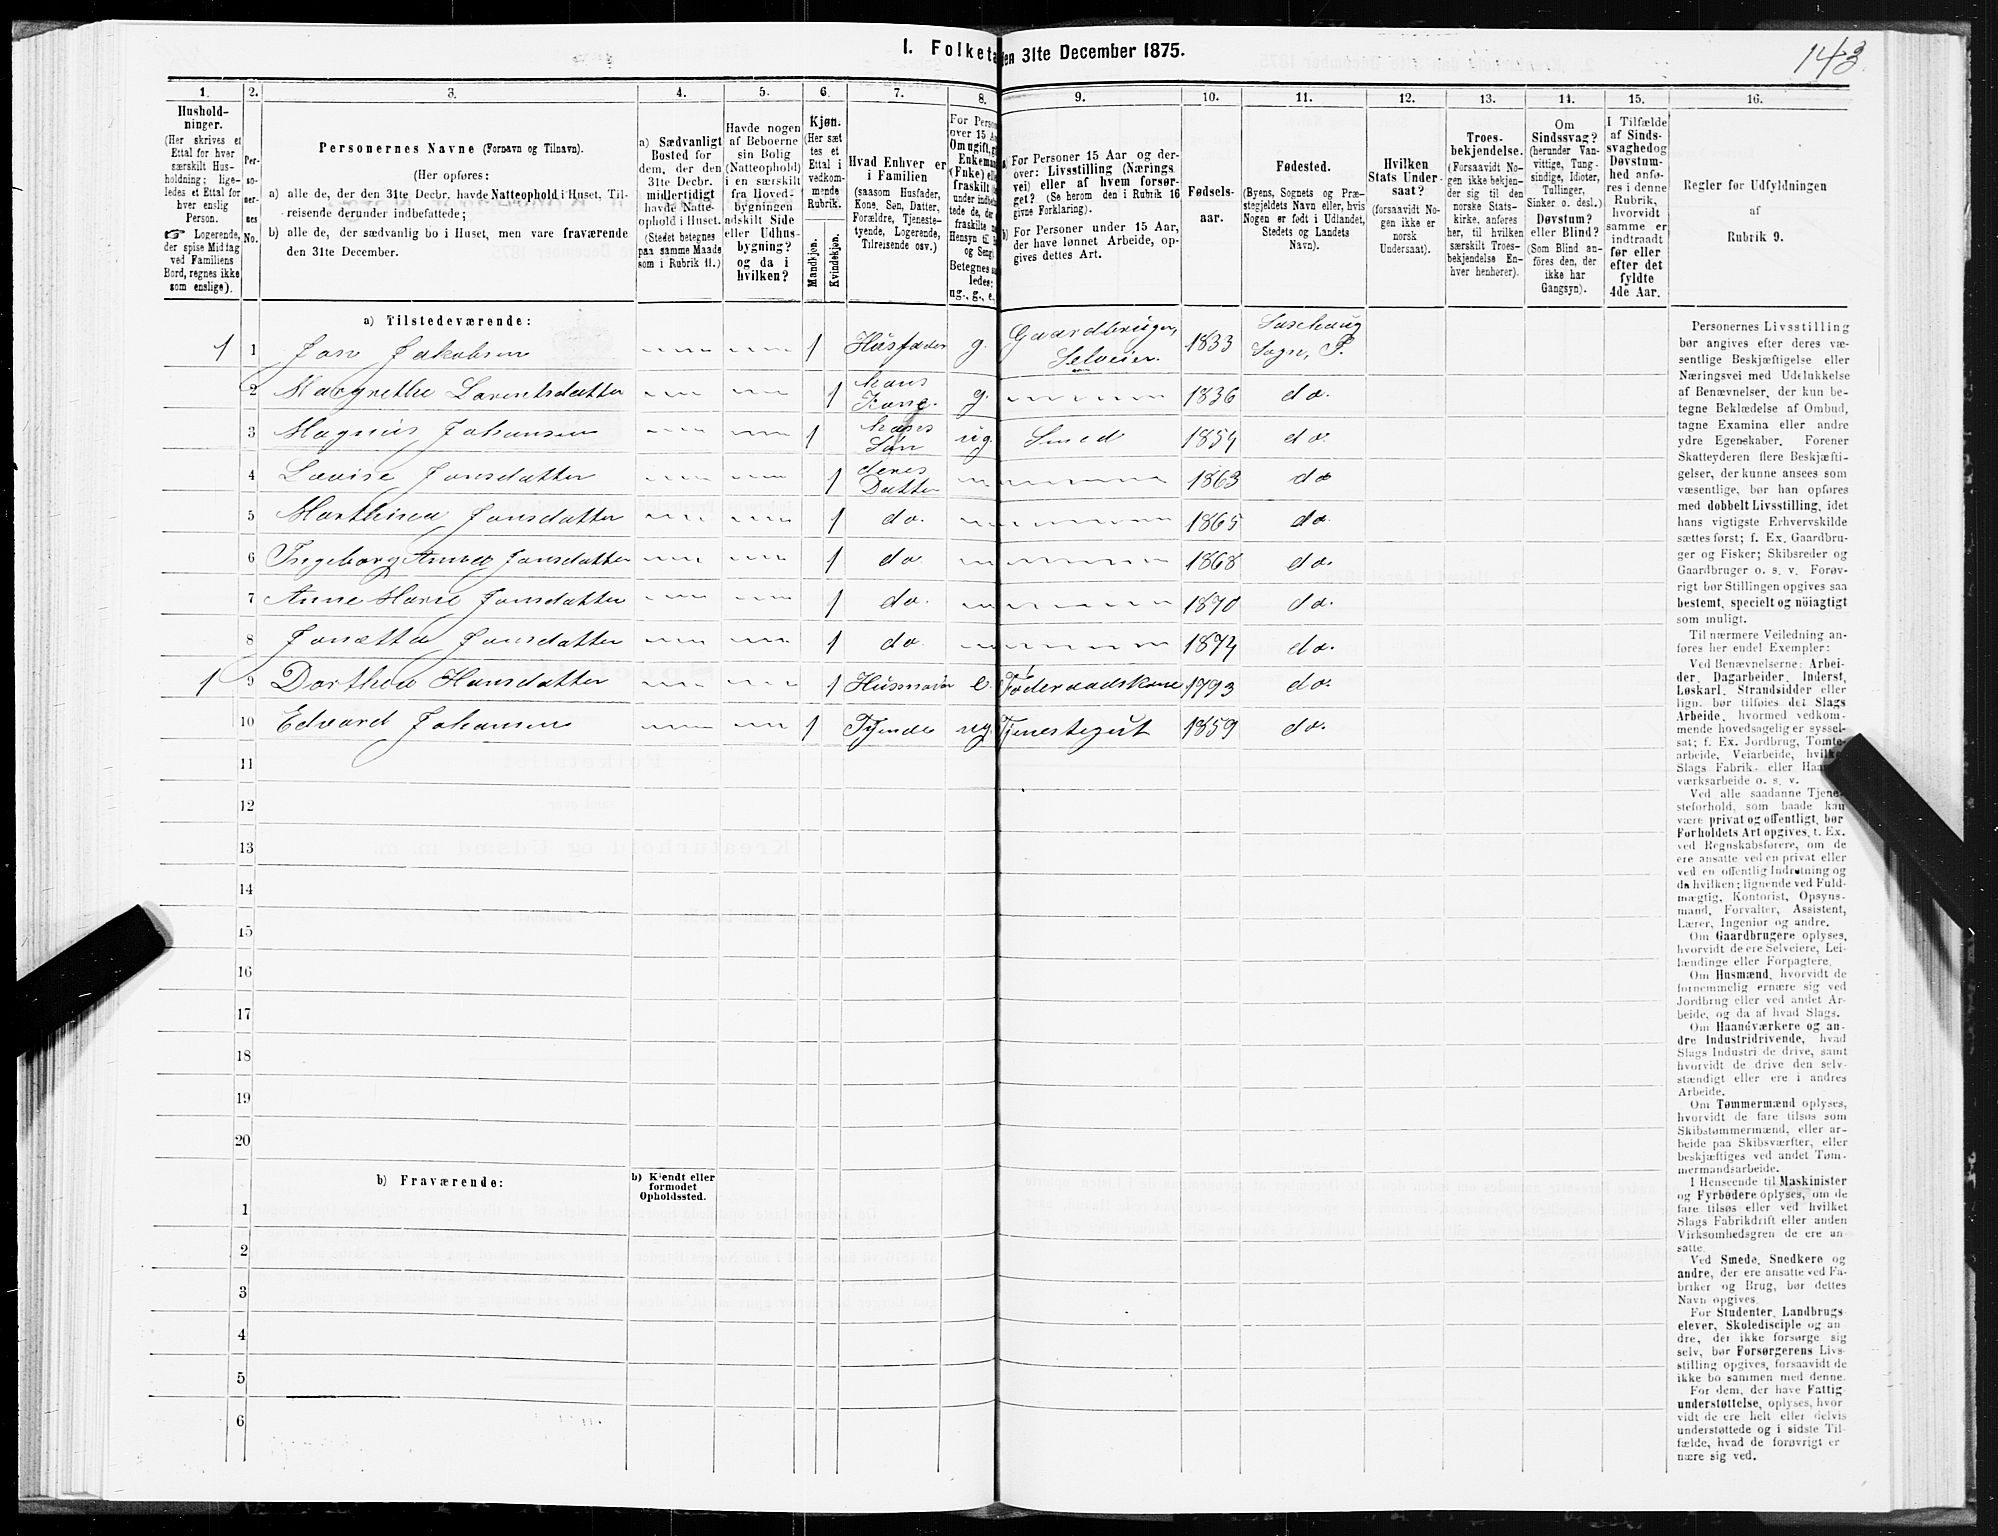 I. Folketæ
en 31te December 1875.
143
1.
2.
3.
4.
5.
6.
7.
8.
9.
10.
11.
12.
13.
14.
15.
16.
Hushold-
ninger.
(Her skrives et
Ettal for hver
særskilt Hus-
holdning; lige-
ledes et Ettal for
hver enslig
Person.
☞ Logerende,
der spise Middag
ved Familiens
Bord, regnes ikke
som enslige).
Per-
so-
ner-
nes
No.
Personernes Navne (Fornavn og Tilnavn).
(Her opføres:
a) alle de, der den 31te Decbr. havde Natteophold i Huset, Til-
reisende derunder indbefattede;
b) alle de, der sædvanlig bo i Huset, men vare fraværende
den 31te December.
a) Sædvanligt
Bosted for
dem, der den
31te Decbr.
midlertidigt
havde Natte-
ophold i Huset.
(Stedet betegnes
paa samme Maade
som i Rubrik 11.)
Havde nogen
af Beboerne
sin Bolig
(Natteophold)
i en særskilt
fra Hoved-
bygningen
adskilt Side
eller Udhus-
bygning?
og da i
hvilken?
Kjøn.
(Her sæt
tes et
Ettal i
vedkom-
mende
Rubrik.
Mandkjøn.
Kvindekjøn.
Hvad Enhver er
i Familien
(saasom Husfader,
Kone, Søn, Datter,
Forældre, Tjeneste-
tyende, Logerende,
Tilreisende osv.)
For Person
over 15 Aa
Om ugift, gi
Enkeman
(Enke) elle
fraskilt
Betegnes s
ledes:
ug., g., e.
a) For Personer 15 Aar og der-
over: Livsstilling (Nærings
vei) eller af hvem forsør-
get? (Se herom den i Rubrik 16
givne Forklaring).
b) For Personer under 15 Aar,
der have lønnet Arbeide, op-
gives dettes Art.
Fødsels-
aar.
Fødested.
(Byens, Sognets og Præ-
stegjeldets Navn eller, hvis
Nogen er født i Udlandet,
Stedets og Landets
Navn).
Hvilken
Stats Under-
saat?
(forsaavidt No-
gen ikke er
norsk
Undersaat).
Troes-
bekjendelse.
(Forsaavidt No-
gen ikke bekjen-
der sig til den
norske Stats-
kirke, anføres
her, til hvilken
særskilt Troes-
bekjendelse En-
hver henhører).
Om
Sindssvag?
(herunder Van-
vittige, Tung-
sindige, Idioter,
Tullinger,
Sinker o. desl.)
Døvstum?
eller Blind?
(Som Blind an-
føres den, der
ikke har
Gangsyn).
I Tilfælde
af Sinds-
svaghed og
Døvstum-
hed anfø-
res i denne
Rubrik,
hvorvidt
samme er
indtraadt
før eller
efter det
fyldte
4de Aar.
Regler for Udfyldningen
af
Rubrik 9.
a) Tilstedeværende:
1 1 Jon Jakobsen 1 Husfader g. Gaardbruger, Selveier. 1833 Sogn, P.
2 Margrethe Lorentsdatter 1 hans Kone. g. 1836 do.
3 Magnus Johansen 1 hans Søn ug. Smed 1854 do.
4 Lovise Jonsdatter 1 deres Datter 1863 do
5 Marthina Jonsdatter 1 do. 1865 do.
6 Ingeborg Anna Jonsdatter 1 do. 1868 do.
7 Anne Marie Jonsdatter 1 do. 1870 do.
8 Jonetta Jonsdatter 1 do. 1874 do.
1 9 Dorthea Hansdatter 1 e. Føderaadskone 1793 do.
10 Edvard Johansen 1 Tyende ug. Tjenestegut 1859 do.
11
12
13
14
15
16
17
18
19
20
b) Fraværende:
b) Kjendt eller
formodet
Opholdssted.
1
2
3
4
5
6
Personernes Livsstilling
bør angives efter deres væ-
sentlige Beskjæftigelse eller
Næringsvei med Udelukkelse
af Benævnelser, der kun be-
tegne Beklædelse af Ombud,
tagne Examina eller andre
ydre Egenskaber. Forener
Skatteyderen flere Beskjæfti-
gelser, der kunne ansees som
væsentlige, bør han opføres
med dobbelt Livsstilling, idet
hans vigtigste Erhvervskilde
sættes først; f. Ex. Gaardbru-
ger og Fisker; Skibsreder og
Gaardbruger o. s. v. Forøv-
rigt bør Stillingen opgives saa
bestemt, specielt og nöiagtigt
som muligt.
Til nærmere Veiledning an-
føres her endel Exempler:
Ved Benævnelserne: Arbei-
der, Dagarbeider, Inderst,
Løskarl, Strandsidder eller
lign. bør tilføies det Slags
Arbeide, hvormed vedkom-
mende hovedsagelig er syssel-
sat; f. Ex. Jordbrug, Tomte-
arbeide, Veiarbeide, hvilke
Slags Fabrik- eller Haand-
værksarbeide o. s. v.
Ved alle saadanne Tjene-
steforhold, som baade kan
være privat og offentligt, bør
Forholdets Art opgives, t. Ex.
ved Regnskabsførere, om de
ere ansatte ved en privat eller
ved en offentlig Indretning og
da hvilken; lignende ved Fuld-
mægtig, Kontorist, Opsyns-
mand, Forvalter, Assistent,
Lærer, Ingeniør og andre.
Om Gaardbrugere oplyses,
hvorvidt de ere Selveiere, Lei-
lændinge eller Forpagtere.
Om Husmænd, hvorvidt de
fornemmelig ernære sig ved
Jordbrug eller ved andet Ar-
beide, og da af hvad Slags.
Om Haandværkere og an-
dre Industridrivende, hvad
Slags Industri de drive, samt
hvorvidt de drive den selv-
stændigt eller ere i andres
Arbeide.
Om Tømmermænd oplyses,
hvorvidt de fare tilsøs som
Skibstømmermænd, eller ar-
beide paa Skibsværfter, eller
beskjæftiges ved andet Tøm-
mermandsarbeide.
I Henseende til Maskinister
og Fyrbødere oplyses, om de
fare tilsøs eller ved hvilket
Slags Fabrikdrift eller anden
Virksomhedsgren de ere an-
satte.
Ved Smede, Snedkere og
andre, der ere ansatte ved Fa-
briker og Brug, bør dettes
Navn opgives.
For Studenter, Landbrugs
elever, Skoledisciple og an
dre, der ikke forsørge sig
selv, bør Forsørgerens Livs-
stilling opgives, forsaavidt de
ikke bo sammen med denne.
For dem, der have Fattig-
understøttelse, oplyses, hvor
vidt de ere helt eller delvis
understøttede og i sidste Til-
fælde, hvad de forøvrigt er
nære sig ved.